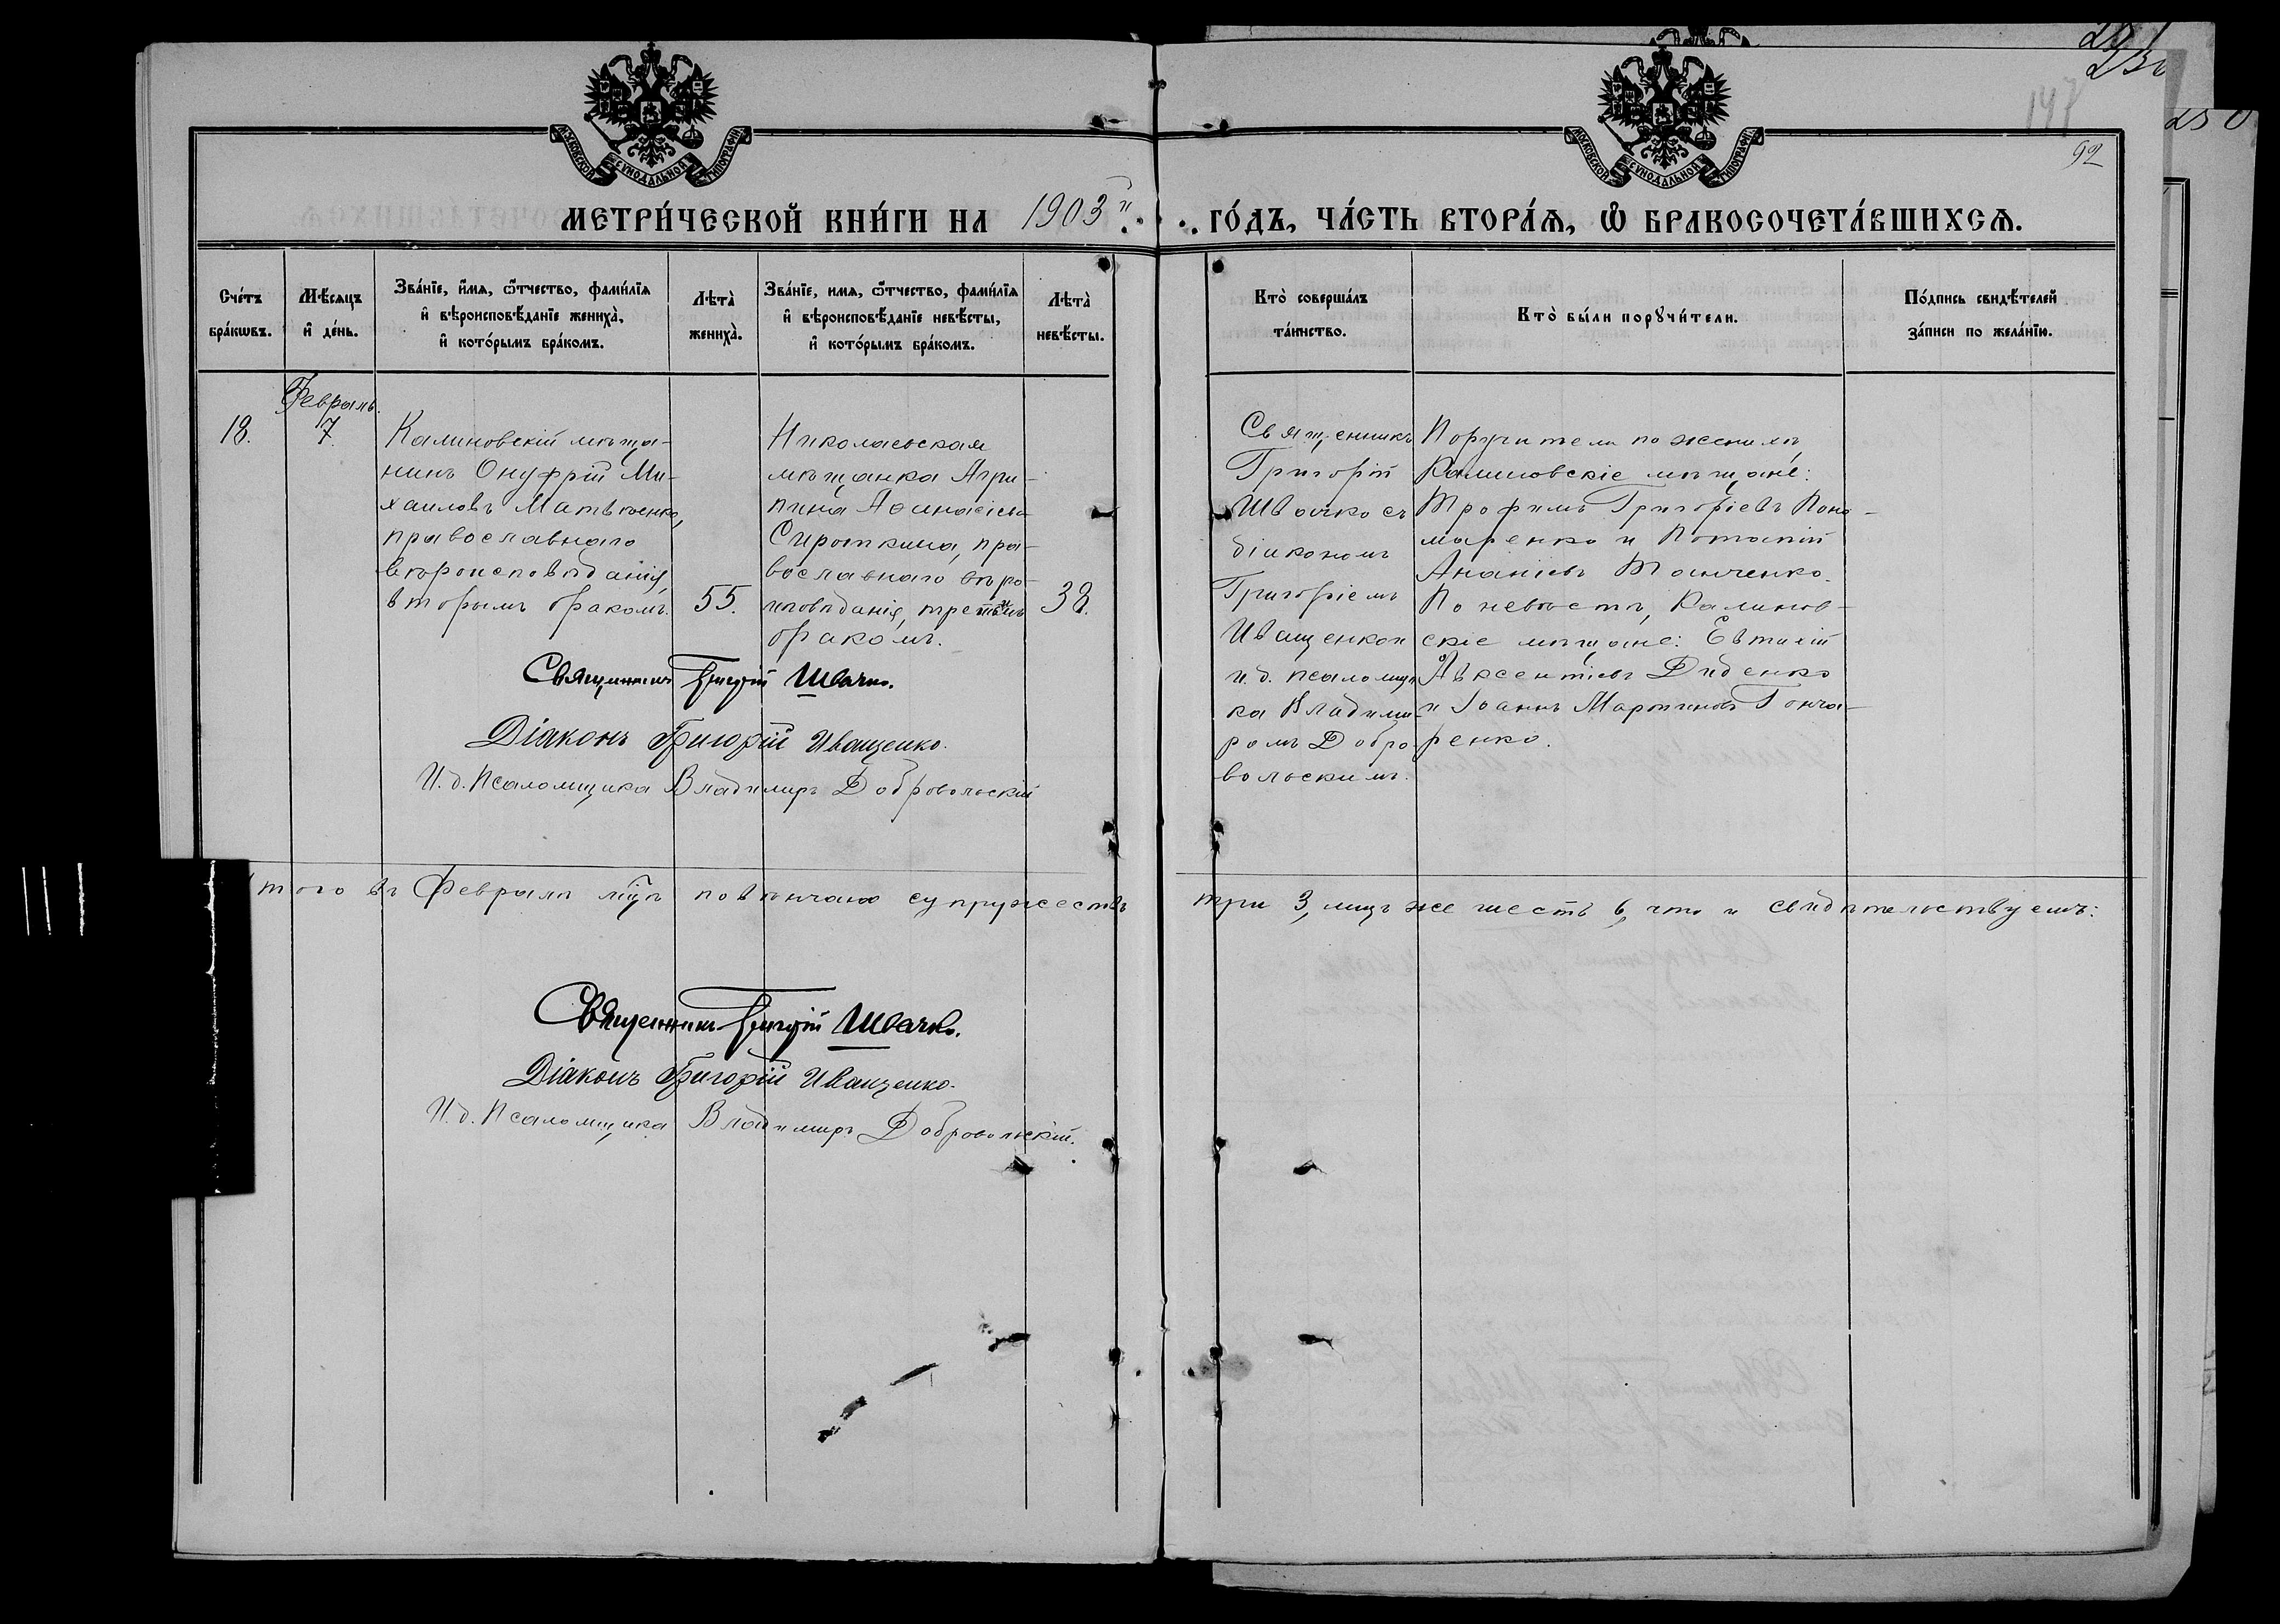 251
236
250
147
92
МОСКОВСКОЙ СѴНОДАЛЬНОЙ ТИПОГРАФІИ
МОСКОВСКОЙ СѴНОДАЛЬНОЙ ТИПОГРАФІИ
МЕТРИ́ЧЕСКОЙ КНИ́ГИ НА 1903й
ГО́ДЪ, ЧА́СТЬ ВТОРА́Я, Ѡ БРАКОСОЧЕТА́ВШИХСЯ.
Сче́тъ
бра́кωвъ.
Мѣ́сяцъ
и де́нь.
Зва́нїе, и́мя, ѻ́тчество, фами́лїя
и вѣроисповѣ́данїе жениха̀,
и кото́рымъ бра́комъ.
Лѣта̀
жениха̀.
Зва́нїе, имя, ѻ́тчество, фами́лїя
и вѣроисповѣ́данїе невѣ́сты,
и кото́рымъ бра́комъ.
Лѣта̀
невѣ́сты.
Кто̀ соверша́лъ
та́инство.
Кто̀ бы́ли порꙋчи́тели.
По́дпись свидѣ́телей
за́писи по жела́нїю.
Февраль.
18.
7.
Калиновскій мѣща-
нинъ Онуфрій Ми-
хаиловъ Матвѣенко,
православнаго
вѣроисповѣданія,
вторымъ бракомъ.
55.
Николаевская
мѣщанка Агри-
пина Аѳанасіева
Сироткина, пра-
вославнаго вѣро-
исповѣданія, третьимъ
бракомъ.
38.
Священникъ
Григорій
Швачко съ
діакономъ
Григоріемъ
Иващенкои
и. д. псаломщи
ка Владими-
ромъ Добро
вольскимъ.
Поручители по женихѣ,
Калиновскіе мѣщане:
Трофимъ Григоріевъ Поно-
маренко и Потапій
Ананіевъ Танченко.
По невѣстѣ, Калинов-
скіе мѣщане: Евтихій
Авксентіевъ Диденко
и Іоаннъ Мартиновъ Гонча-
ренко.
Священникъ Григорій Швачко.
Діаконъ Григорій Иващенко.
И. д. Псаломщика Владимиръ Добровольскій
Итого въ Февралѣ мцѣ повѣнчано супружествъ три 3, лицъ же шесть 6, что и свидѣтельствуемъ:
Священникъ Григорій Швачко.
Діаконъ Григорій Иващенко.
И. д. Псаломщика Владимиръ Добровольскій.